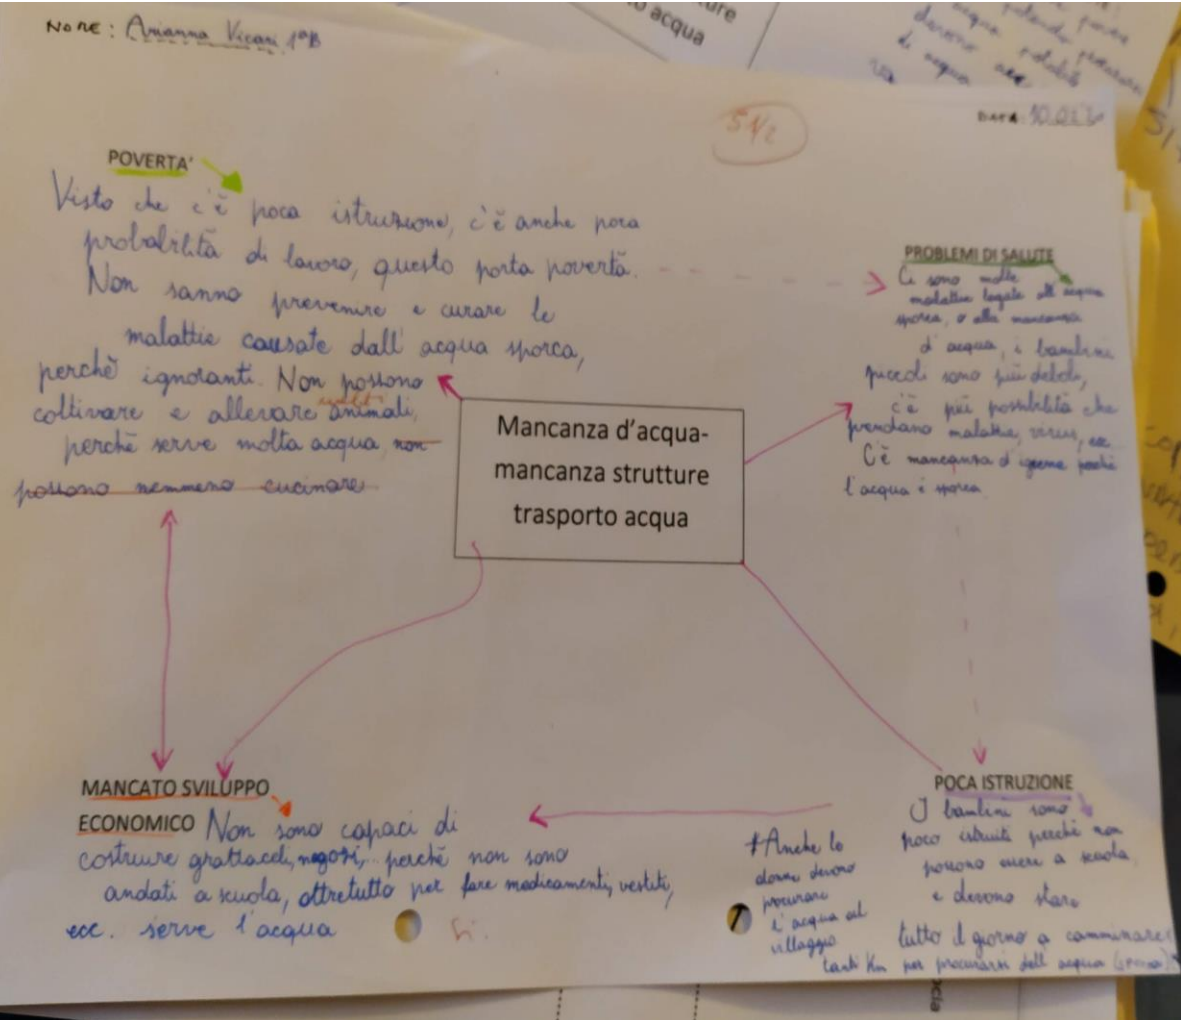 NOME: Arianna Vicari 1ªB
51/2
DATA:
POVERTA'
Visto che c'è poca istruzione, c'è anche poca
probabilità di lavoro, questo porta povertà.
Non sanno prevenire e curare le
malattie causate dall'acqua sporca,
perchè ignoranti. Non possono
coltivare e allevare animali,
perchè serve molta acqua, non
possono nemmeno cucinare
PROBLEMI DI SALUTE
Ci sono molte
malattie legate all'acqua
sporca, o alla mancanza
d'acqua, i bambini
piccoli sono più deboli,
c'è più possibilità che
prendano malattie, virus, ecc.
C'è mancanza d'igiene perchè
l'acqua è sporca
Mancanza d'acqua-
mancanza strutture
trasporto acqua
MANCATO SVILUPPO
ECONOMICO Non sono capaci di
costruire grattacieli, negozi,.. perchè non sono
andati a scuola, oltretutto per fare medicamenti, vestiti,
ecc. serve l'acqua
Sì.
POCA ISTRUZIONE
I bambini sono
poco istruiti perchè non
possono a scuola,
e devono stare
tutto il giorno a camminare
tanti Km per procurarsi dell'acqua (sporca)
*Anche le
donne devono
procurare
l'acqua al
villaggio
acqua